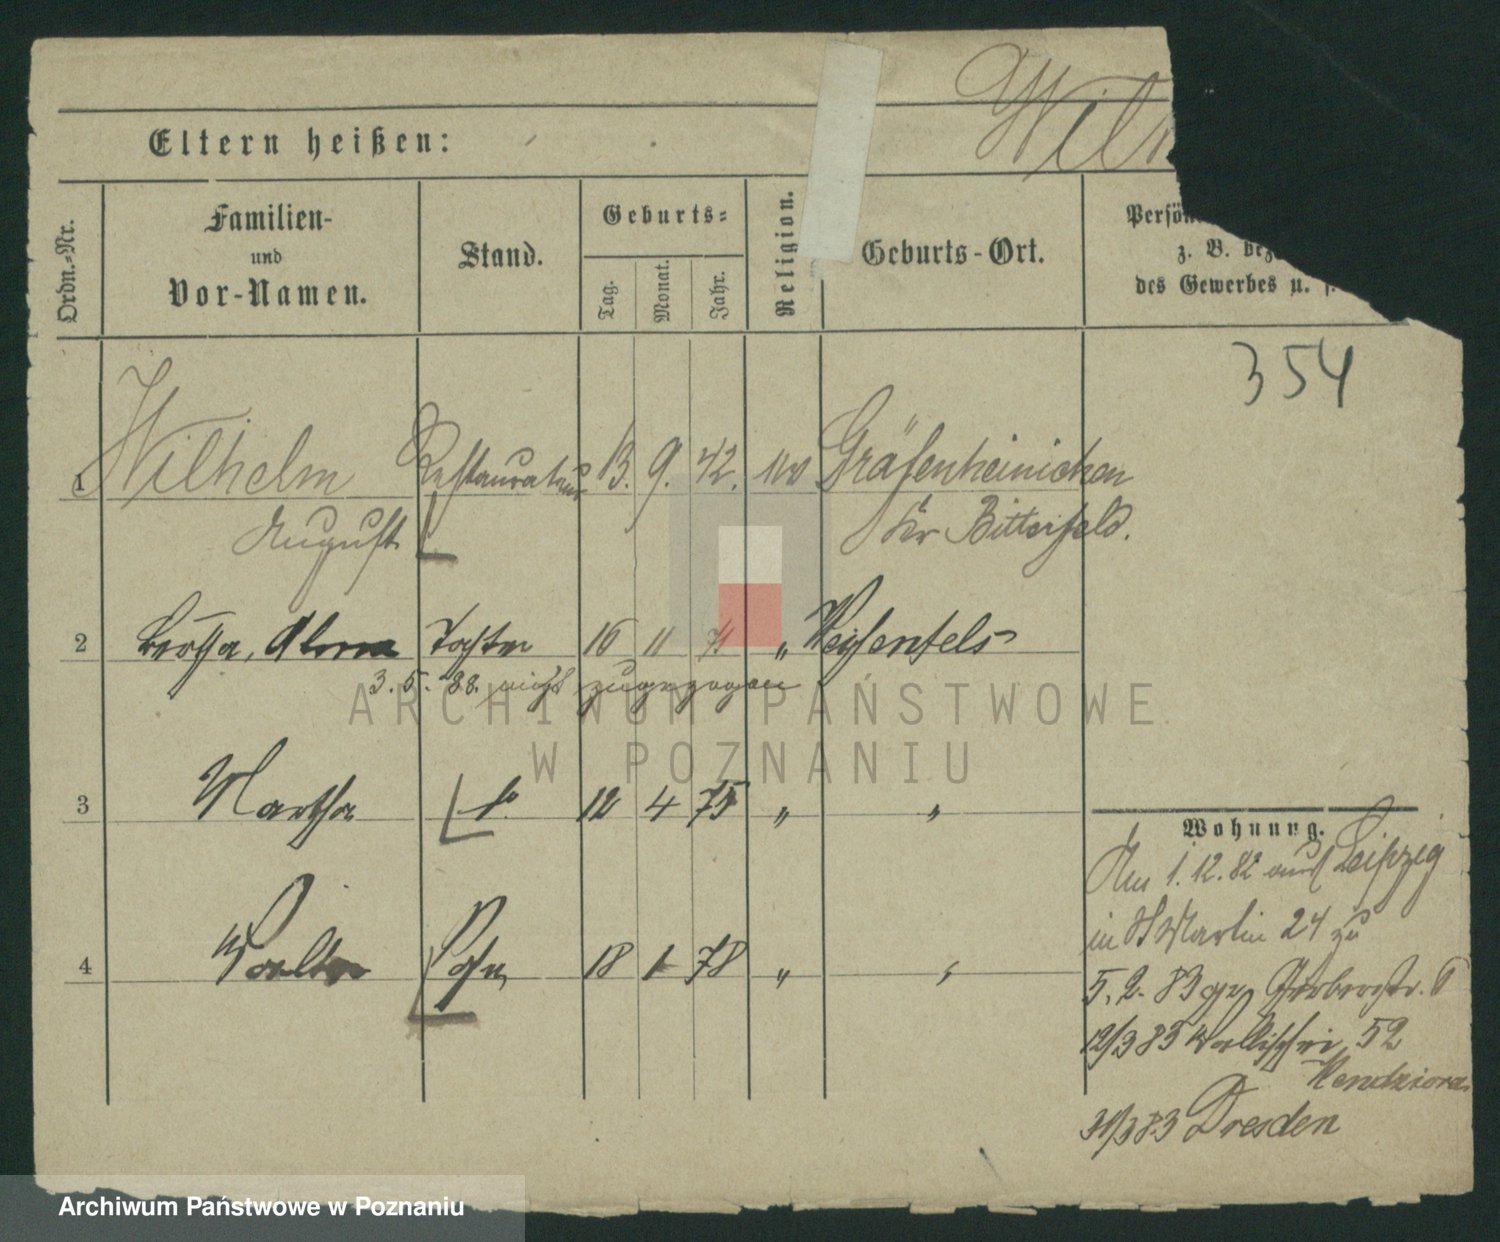 Wil
Eltern heißen:
Ordn.-Nr.
Familien-
und
Vor-Namen.
Stand.
Geburts-
Tag.
Monat.
Jahr.
Religion.
Geburts-Ort.
Persön
z. B. bez
des Gewerbes u. s.
354
1 Wilhelm Restaurateur 13. 9. 42. Gräfenheinichen
August Kr Bitterfeld.
2 Bertha, Tochter 16 11 71 " Weißenfels
3. 5. 88. nicht zugezogen
3 Martha do 12 4 75 " "
4 Walter Sohn 18 1 78 " "
Wohnung.
Am 1. 12. 82 aus Leipzig
in St Martin 24 zu
5. 2. 83 Gerberstr. 6
12/3 83 Wallischei 52
Kendziora
31/3 83 Dresden
ARCHIWUM PAŃSTWOWE
W POZNANIU
Archiwum Państwowe w Poznaniu